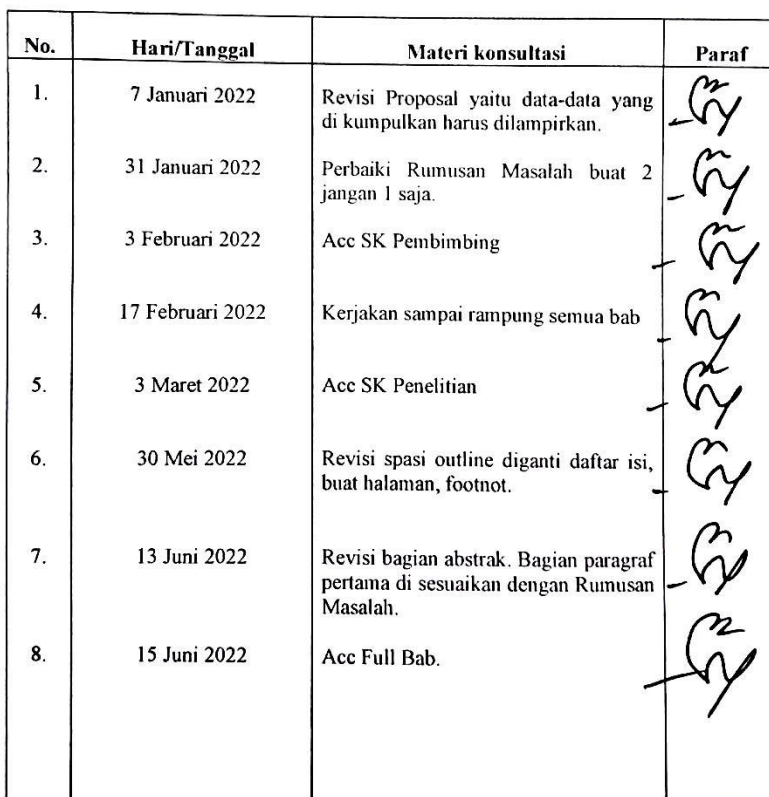 No. Hari/Tanggal Materi konsultasi Paraf
1. 7 Januari 2022 Revisi Proposal yaitu data-data yang
di kumpulkan harus dilampirkan.
2. 31 Januari 2022 Perbaiki Rumusan Masalah buat 2
jangan 1 saja.
3. 3 Februari 2022 Acc SK Pembimbing
4. 17 Februari 2022 Kerjakan sampai rampung semua bab
5. 3 Maret 2022 Acc SK Penelitian
6. 30 Mei 2022 Revisi spasi outline diganti daftar isi,
buat halaman, footnot.
7. 13 Juni 2022 Revisi bagian abstrak. Bagian paragraf
pertama di sesuaikan dengan Rumusan
Masalah.
8. 15 Juni 2022 Acc Full Bab.